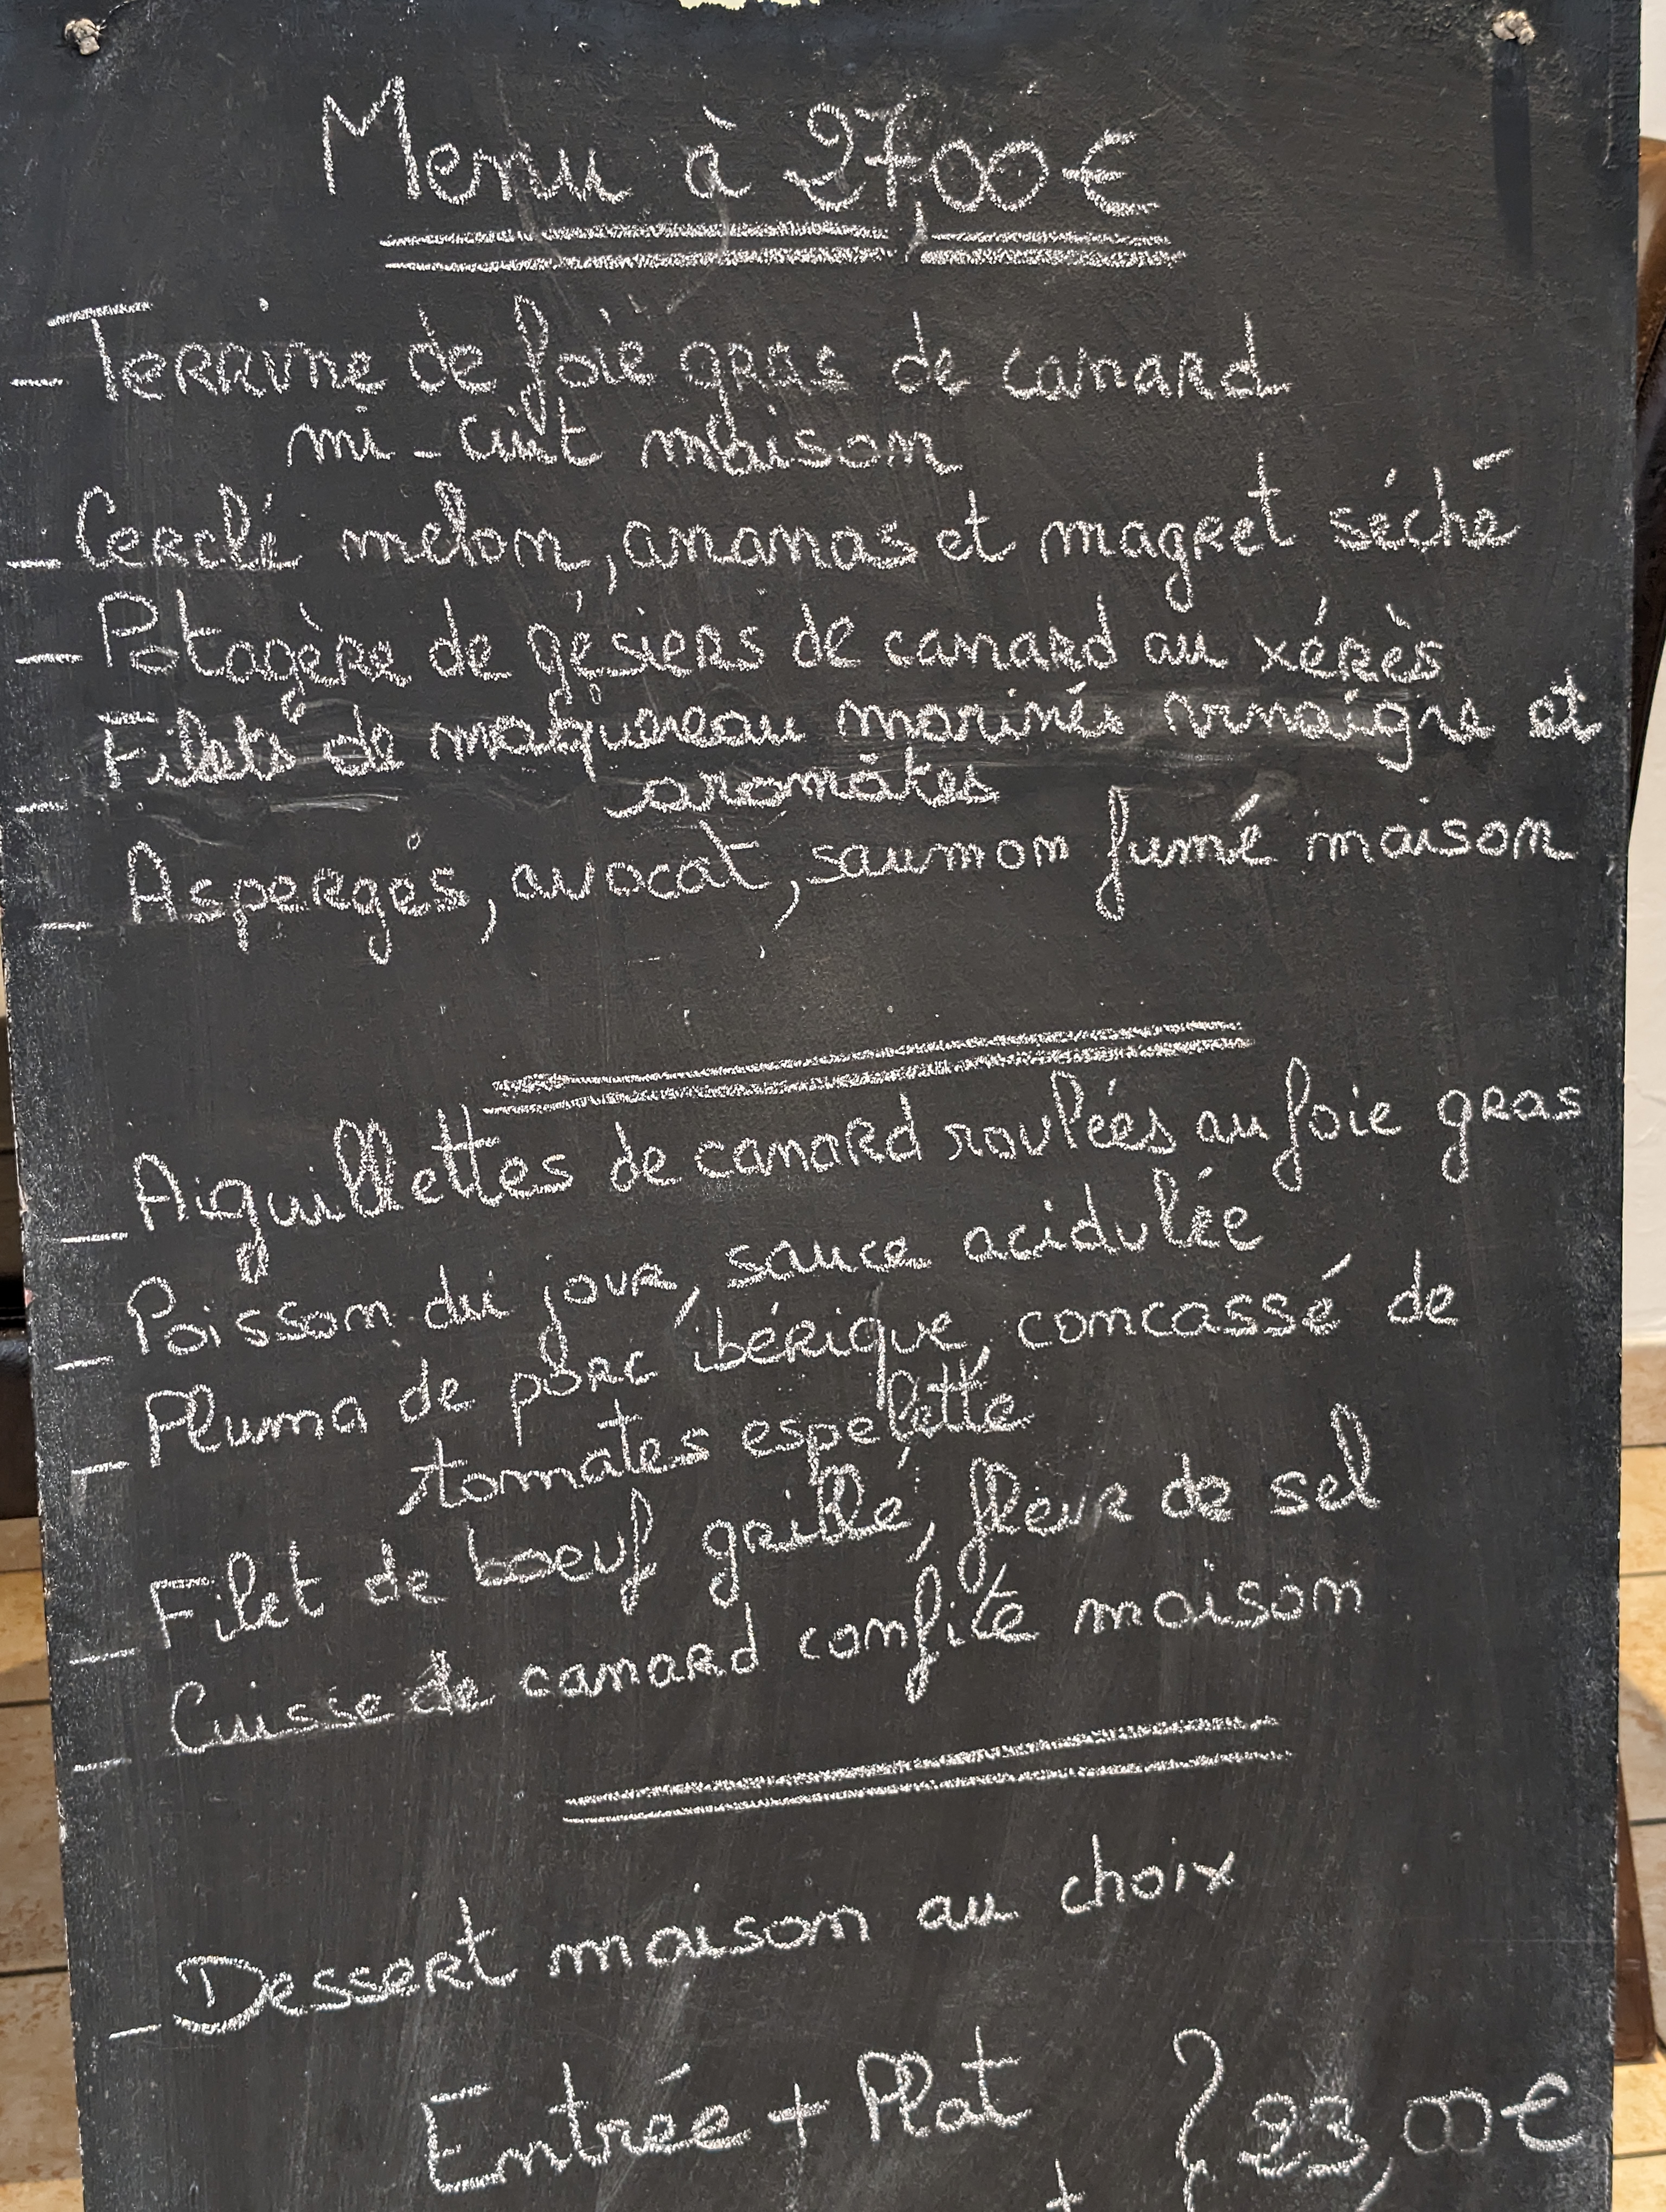 Menu à 27,00€
- Terrine de foie gras de canard
mi-cuit maison
- Cerclé melon, ananas et magret séché
- Potagère de gésiers de canard au xérès
- Filets de maquereau marinés vinaigre et
aromates
- Asperges, avocat, saumon fumé maison
- Aiguillettes de canard roulées au foie gras
- Poisson du jour, sauce acidulée
- Pluma de porc ibérique, concassé de
tomates espelette
- Filet de boeuf grillé, fleur de sel
- Cuisse de canard confite maison
- Dessert maison au choix
Entrée + Plat } 23,00€